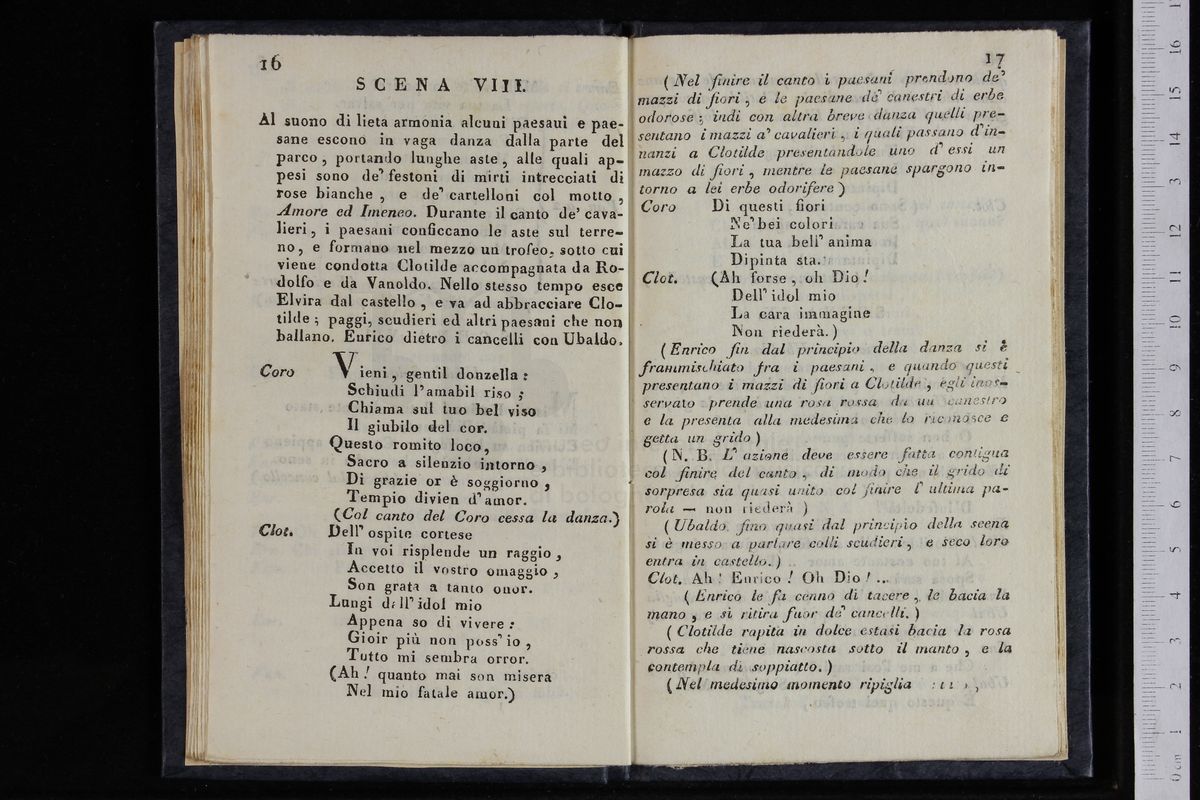 16
SCENA VIII.
Al suono di lieta armonia alcuni paesani e pae-
sane escono in vaga danza dalla parte del
parco, portando lunghe aste, alle quali ap-
pesi sono de' festoni di mirti intrecciati di
rose bianche, e de' cartelloni col motto,
Amore ed Imeneo. Durante il canto de' cava-
lieri, i paesani conficcano le aste sul terre-
no, e formano nel mezzo un trofeo, sotto cui
viene condotta Clotilde accompagnata da Ro-
dolfo e da Vanoldo. Nello stesso tempo esce
Elvira dal castello, e va ad abbracciare Clo-
tilde; paggi, scudieri ed altri paesani che non
ballano. Enrico dietro i cancelli con Ubaldo.
Coro Vieni, gentil donzella:
Schiudi l'amabil riso;
Chiama sul tuo bel viso
Il giubilo del cor.
Questo romito loco,
Sacro a silenzio intorno,
Di grazie or è soggiorno,
Tempio divien d'amor.
(Col canto del Coro cessa la danza.)
Clot. Dell' ospite cortese
In voi risplende un raggio,
Accetto il vostro omaggio,
Son grata a tanto onor.
Lungi dall' idol mio
Appena so di vivere:
Gioir più non poss' io,
Tutto mi sembra orror.
(Ah! quanto mai son misera
Nel mio fatale amor.)
17
(Nel finire il canto i paesani prendono de'
mazzi di fiori, e le paesane de' canestri di erbe
odorose; indi con altra breve danza quelli pre-
sentano i mazzi a' cavalieri, i quali passano d'in-
nanzi a Clotilde presentandole uno d' essi un
mazzo di fiori, mentre le paesane spargono in-
torno a lei erbe odorifere)
Coro Di questi fiori
Ne' bei colori
La tua bell' anima
Dipinta sta.
Clot. (Ah forse, oh Dio!
Dell' idol mio
La cara immagine
Non riederà.)
(Enrico fin dal principio della danza si è
frammischiato fra i paesani, e quando questi
presentano i mazzi di fiori a Clotilde, egli inos-
servato prende una rosa rossa da un canestro
e la presenta alla medesima che lo riconosce e
getta un grido)
(N. B. L' azione deve essere fatta contigua
col finire del canto, di modo che il grido di
sorpresa sia quasi unito col finire l' ultima pa-
rola — non riederà)
(Ubaldo fino quasi dal principio della scena
si è messo a parlare colli scudieri, e seco loro
entra in castello.)
Clot. Ah! Enrico! Oh Dio!...
(Enrico le fa cenno di tacere, le bacia la
mano, e si ritira fuor de' cancelli.)
(Clotilde rapita in dolce estasi bacia la rosa
rossa che tiene nascosta sotto il manto, e la
contempla di soppiatto.)
(Nel medesimo momento ripiglia
0 cm 1 2 3 4 5 6 7 8 9 10 11 12 13 14 15 16 17